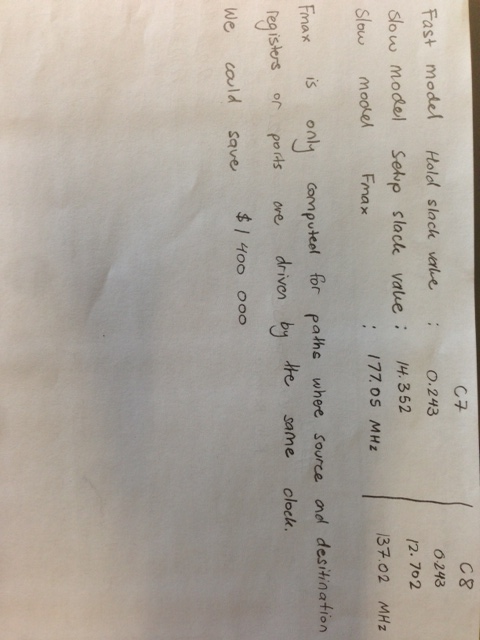 C7 C8
Fast model Hold slack value : 0.243 0.243
Slow model Setup slack value : 14.352 12.702
Slow model Fmax : 177.05 MHz 137.02 MHz
Fmax is only computed for paths where source and desitination
registers or ports are driven by the same clock.
We could save $1 400 000